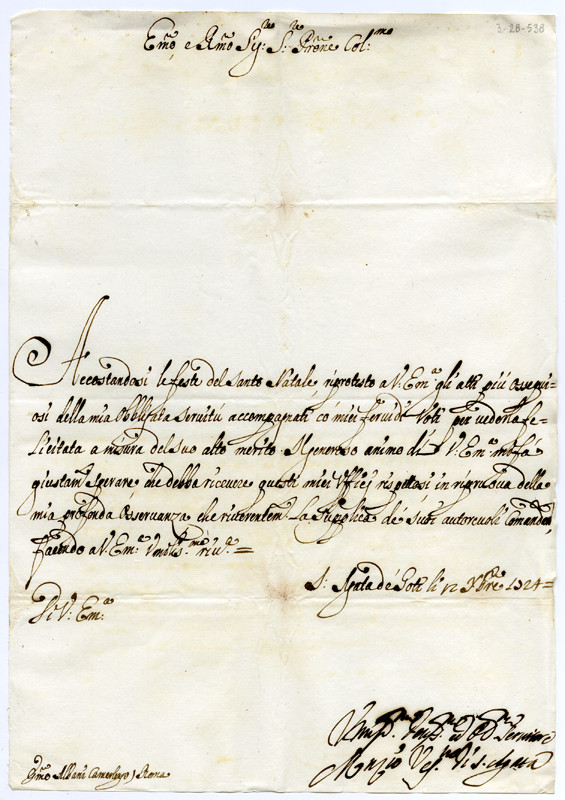 3-28-538
Emo, e Rmo Sig:re S:r Prone Col:mo
Accostandosi le feste del Santo Natale, riprotesto a V. Em:a gli atti più ossequi=
osi della mia obbligata servitù accompagnati có miei fervidi Voti per vederla fe=
licitata a misura del suo alto merito. Il generoso animo di V. Em:a mi fá
giustam:te sperare, che debba ricevere questi miei Uffici rispettosi in ripruova della
mia profonda osservanza, che riverentem:te La Supplica de suoi autorevoli Comandi,
facendo a V. Em:a umilis:ma riv:a =
S: Agata dé Goti li 12 Xbre 1724=
Di V: Em:a
Umo Devmo ed Obmo Servitore
Muzio Ves:vo Di S. Agata
Emo Albani Camerlengo) Roma